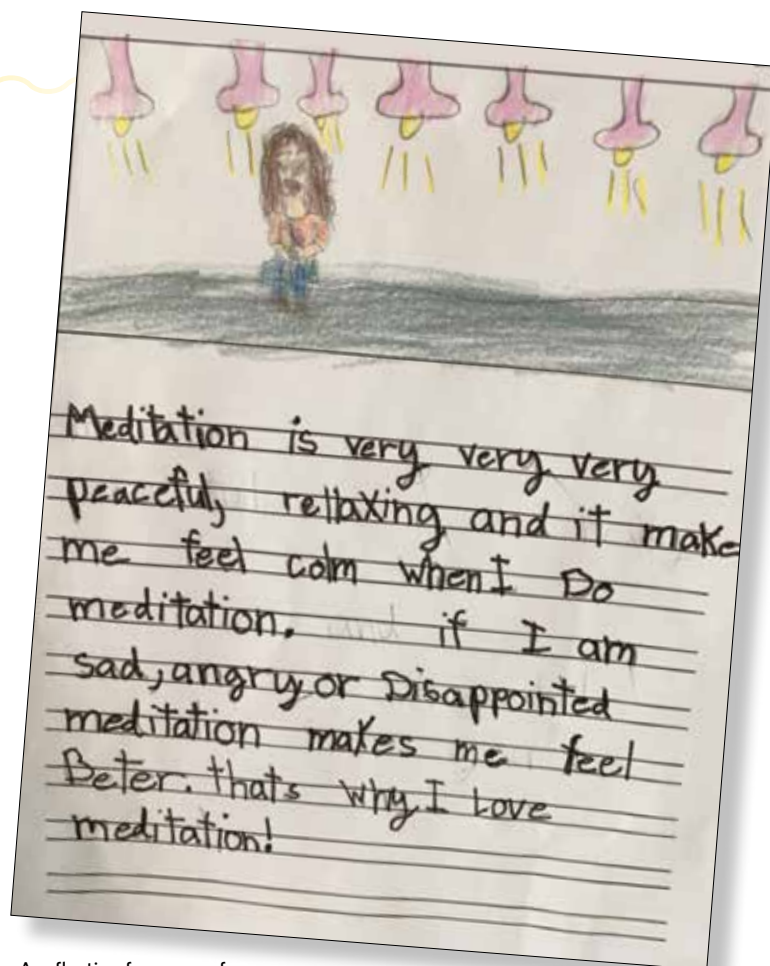 Meditation is very very very
peaceful, rellaxing and it make
me feel colm when I Do
meditation. if I am
sad, angry or Disappointed
meditation makes me feel
Beter. thats why I Love
meditation!